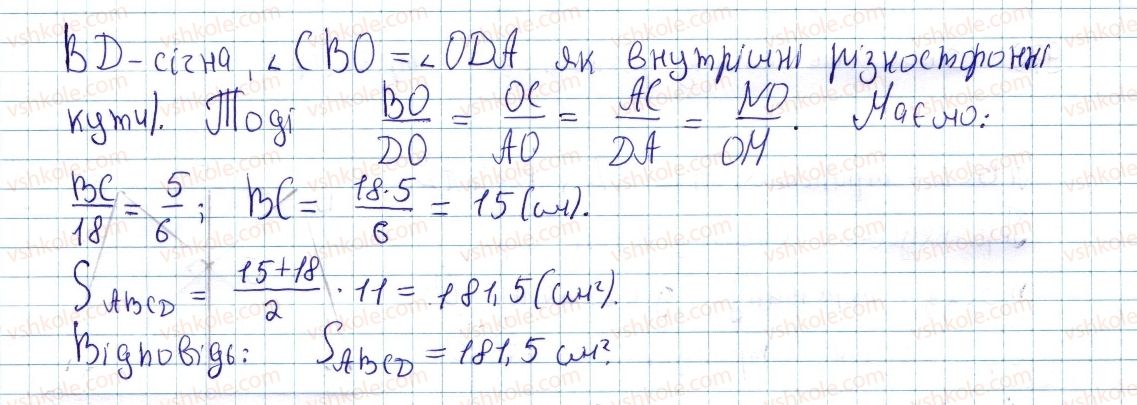 BD-січна, ∠CBO = ∠ODA як внутрішні різносторонні
кути). Тоді BO/DO = OC/AO = AC/DA = NO/OM. Маємо:
BC/18 = 5/6; BC = 18·5/6 = 15 (см).
S ABCD = (15+18)/2 · 11 = 181,5 (см²).
Відповідь: S ABCD = 181,5 см².